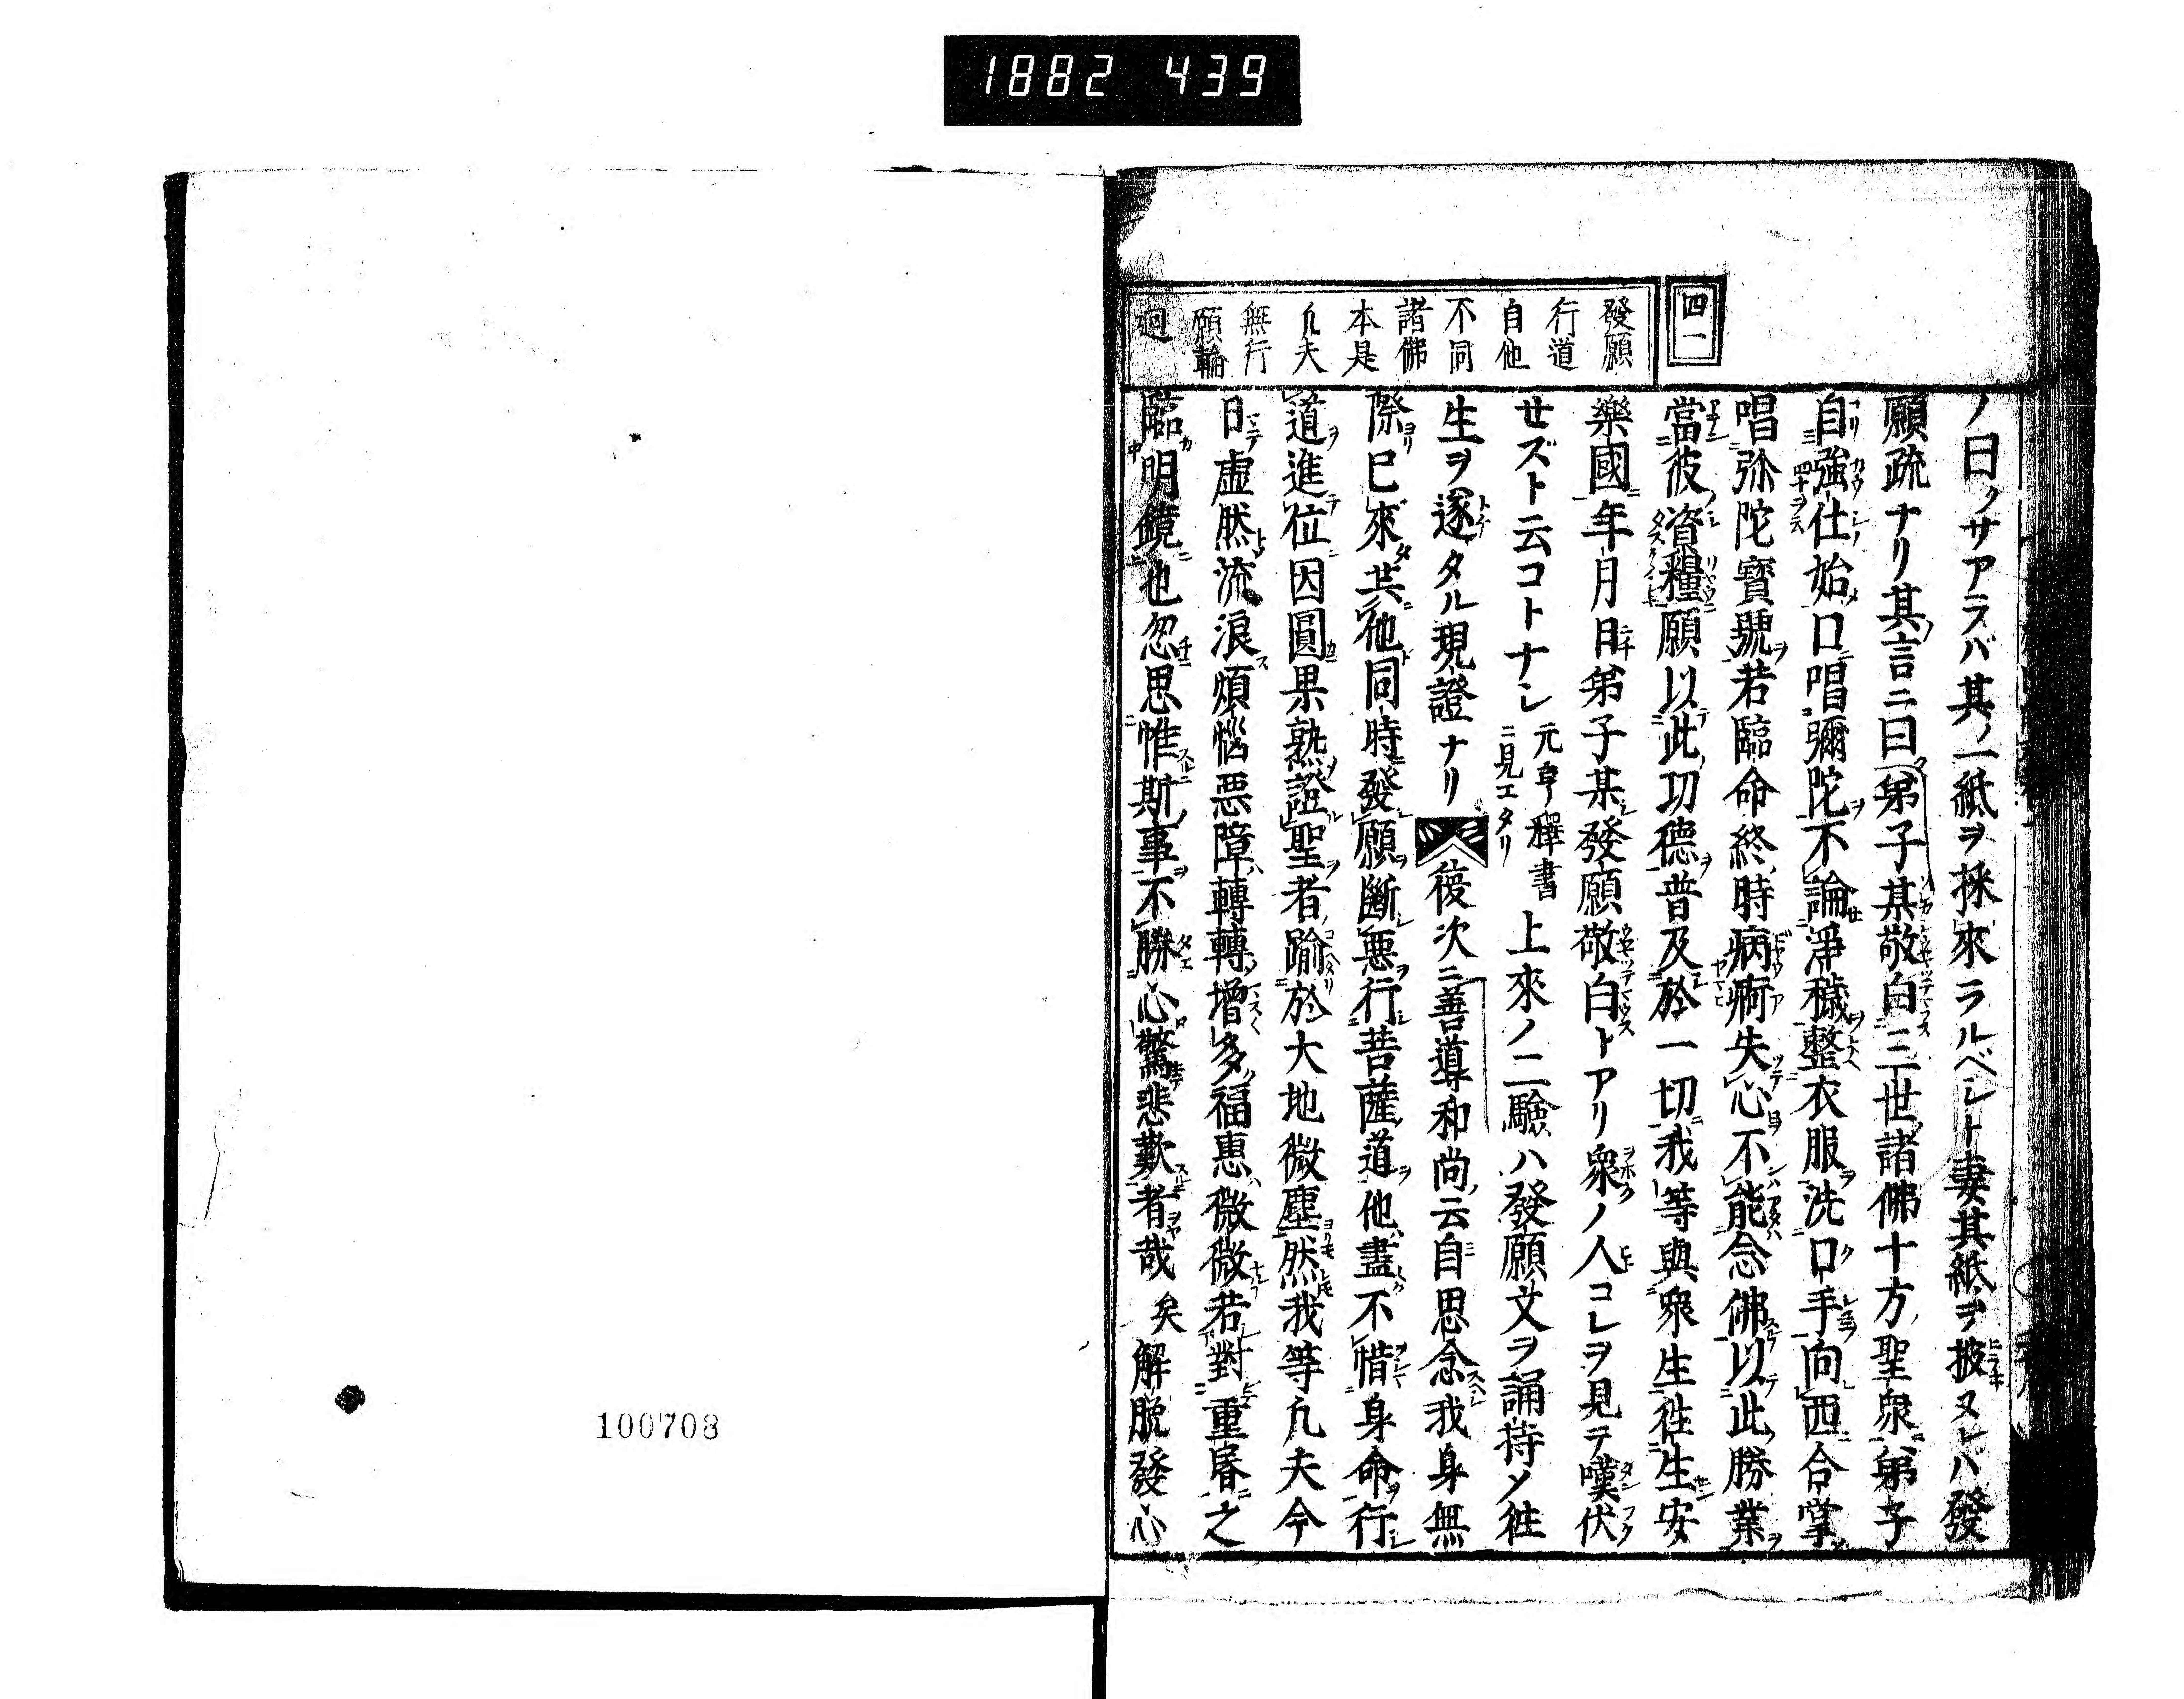 1882 439
四一
發願
行道
自他
不同
諸佛
本是
凢夫
無行
願輪
廻
ノ曰クサアラバ其ノ一紙ヲ採來ラルベシト妻其紙ヲ披ヌレバ發
願疏ナリ其言ニ曰弟子某敬白三世諸佛十方聖衆弟子
自強仕始口唱彌陀不論淨穢整衣服洗口手向西合掌
唱弥陀寳號若臨命終時病痾失心不能念佛以此勝業
當彼資糧願以此功德普及於一切我等與衆生往生安
樂國年月日弟子某發願敬白トアリ衆ノ人コレヲ見テ嘆伏
セズト云コトナシ元亨釋書ニ見エタリ上來ノ二驗ハ發願文ヲ誦持ノ往
生ヲ遂タル現證ナリ復次ニ善導和尚云自思念我身無
際已來共他同時發願斷惡行菩薩道他盡不惜身命行
道進位因圓果熟證聖者踰於大地微塵然我等凢夫今
日虛然流浪煩惱悪障轉轉增多福惠微微若對重昏之
臨明鏡也忽思惟斯事不勝心驚悲歎者哉矣解脱發心
100708